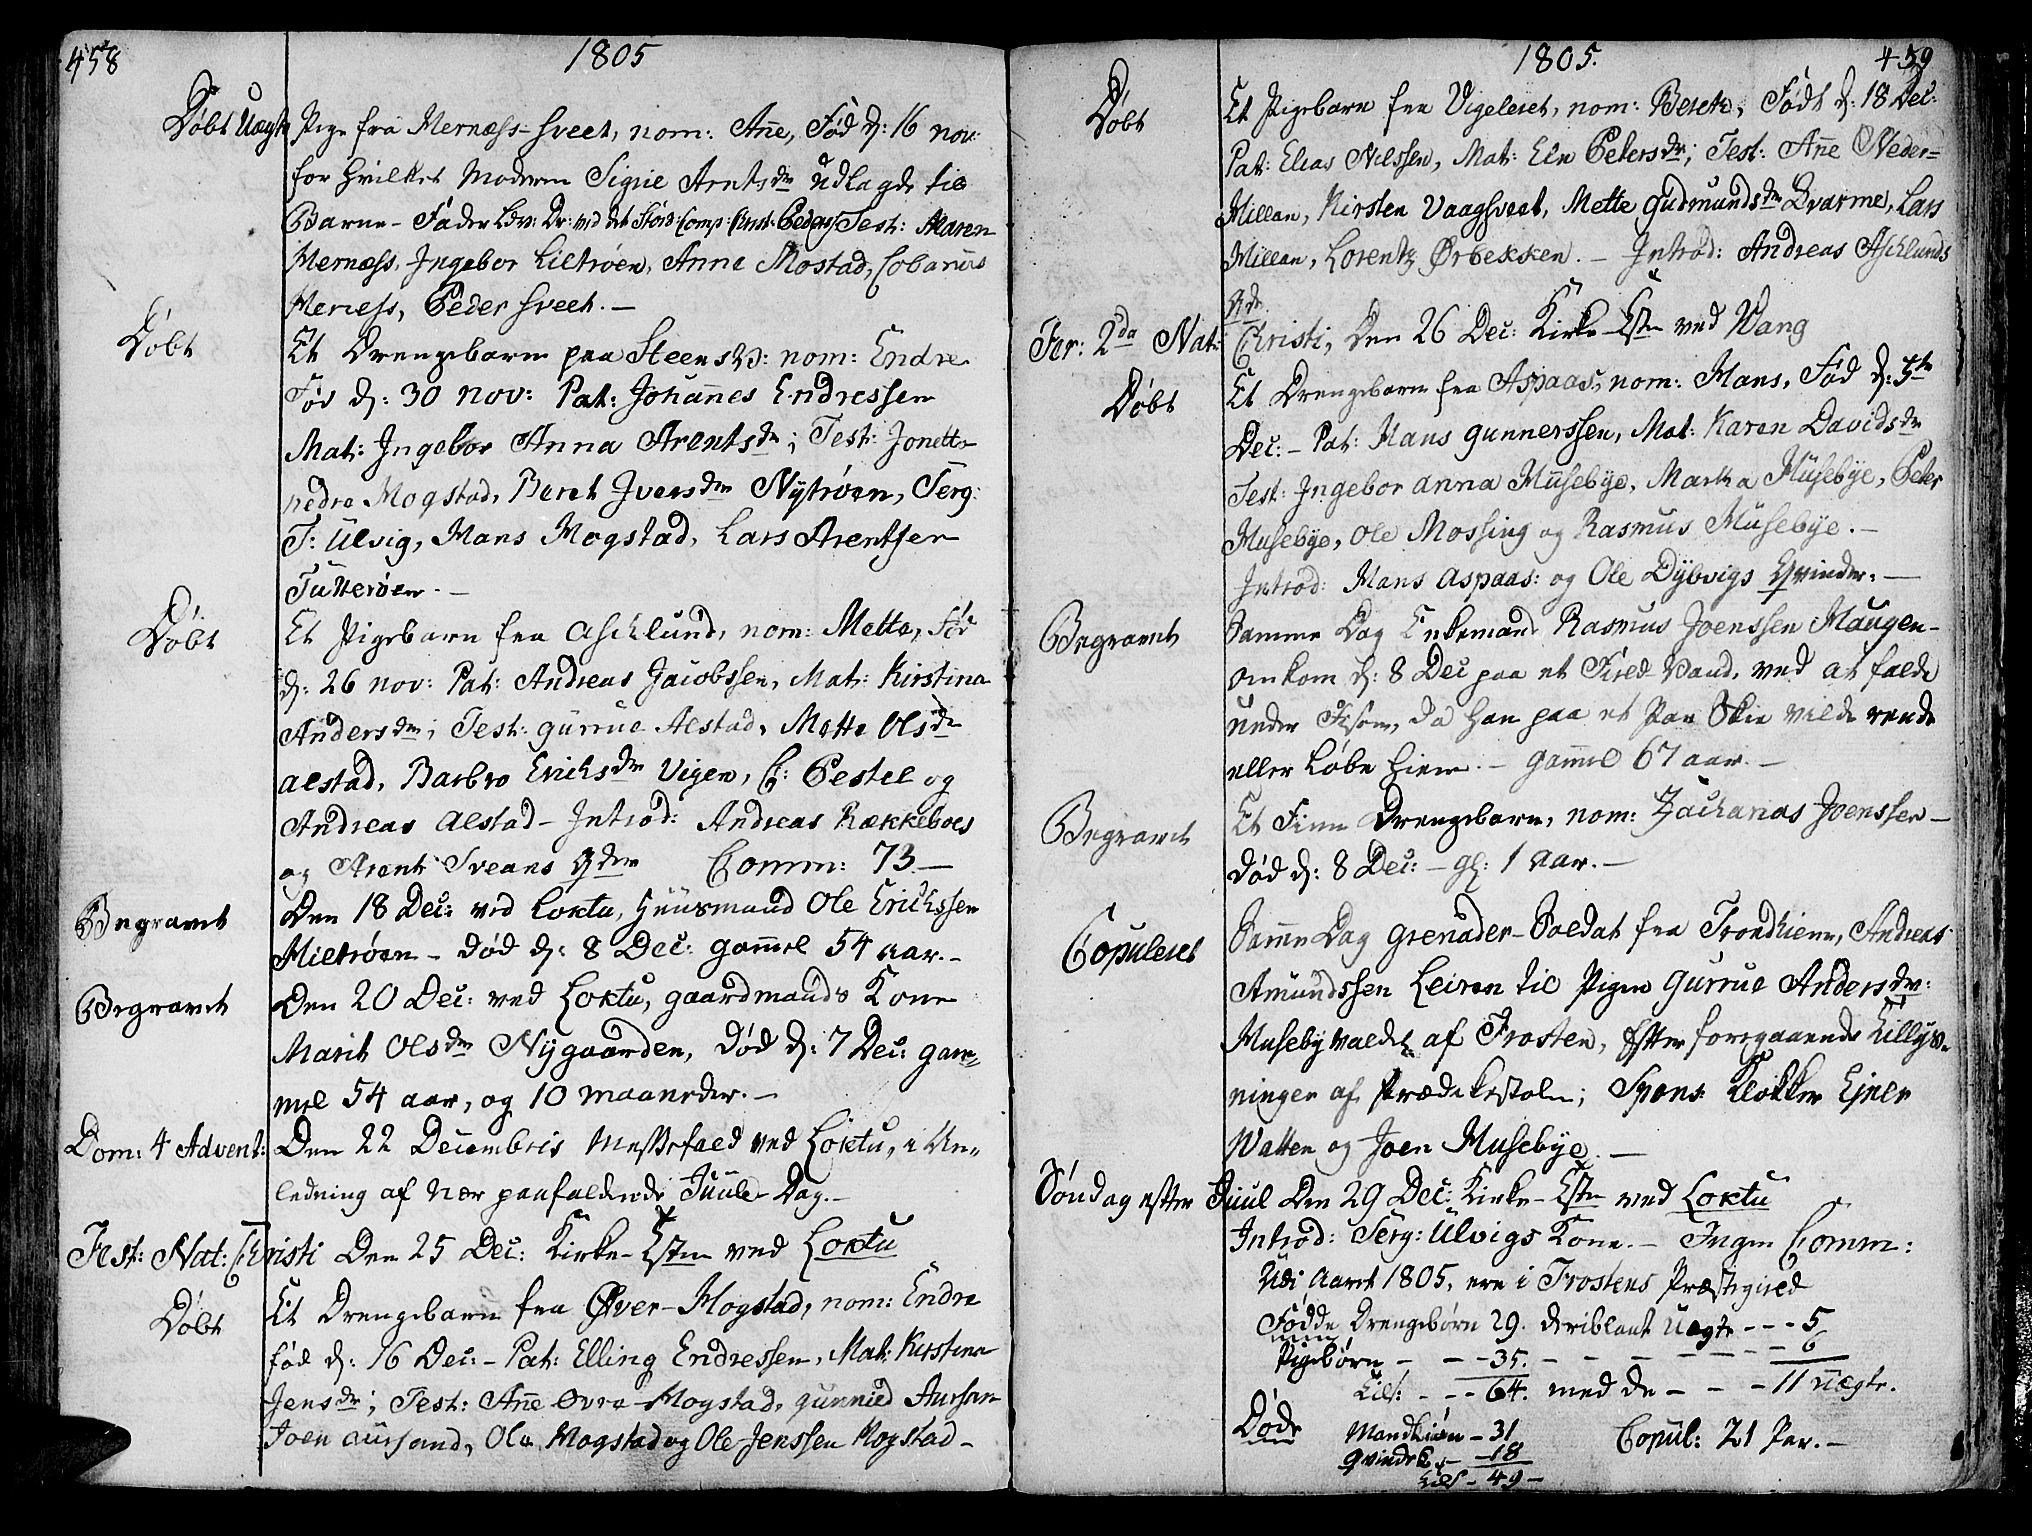 458
1805
Døbt Uægte Pige fra Mernæss-hveet, nom: Añe, Fød d: 16 nov:
for hvilket Moderen Sigrie Arntsdr Udlagde til
Barne-Fader Test: Maren
Mernæss, Ingebor Lietrøen, Anna Mostad,
Mernæss, Peder hveet.-
Døbt
Et Drengebarn paa Steens nom: Endre
Fød d: 30 nov: Pat: Johañes Endressen
Mat: Ingebor Anna Arentsdr; Test: Jonetta
nedre Mogstad, Beret Iversdr Nÿtrøen, Serg:
T: Ulvig, Hans Mogstad, Lars Arentsen
Tutterøen.-
Døbt
Et Pigebarn fra Aschlund, nom: Mette, Fød
d: 26 nov: Pat: Andreas Jacobssen, Mat: Kirstina
Andersdr; Test: gurrue Alstad, Mette Olsdr
alstad, Barbro Erichsdr Vigen, C: Pestel og
Andreas alstad - Introd: Andreas Rækkeboes
og Arent Sveans Qder Comm: 73.-
Begravet
Den 18 Dec: ved Loktu, Huusmand Ole Erichssen
Mietrøen - død d: 8 Dec: gam̃el 54 aar.-
Begravet
Den 20 Dec: ved Loktu, gaardmands Kone
Marit Olsdr Nÿgaarden, død d: 7 Dec: gam-
mel 54 aar, og 10 maaneder.-
Dom: 4 Advent:
Den 22 Decembris Messefald ved Loktu, i An-
ledning af nær paafaldende Juule-Dag.-
Fest: Nat: Christi Den 25 Dec: Kirke-Estn ved Loktu
Døbt
Et Drengebarn fra Øver-Mogstad, nom: Endre
fød d: 16 Dec:- Pat: Elling Endressen, Mat: Kirstina
Jensdr; Test: Añe Øvre-Mogstad, gunnild Aursan
Joen aursand, Ole Mogstad og Ole Jenssen Mogstad-
1805.
459
Døbt
Et Pigebarn fra Vigeleret, nom: Beret, Født d: 18 Dec:
Pat: Elias Nilssen, Mat: Eln Petersdr; Test: Añe Neder-
Millan, Kirsten Vaaghveet, Mette gudmundsdr Dvarme, Lars
Millan, Lorentz Ørbekken.- Introd: Andreas Aschlunds
Qde.
Fer: 2da Nat: Christi, Den 26 Dec: Kirke-Estn ved Vang
Døbt
Et Drengebarn fra Aspaas, nom: Hans, Fød d: 5te
Dec:- Pat: Hans gunnerssen, Mat: Karen Davidsdr
Test: Ingebor anna Musebÿe, Martha Musebÿe, Peter
Musebÿe, Ole Mossing og Rasmus Musebÿe.-
Introd: Hans aspaas: og Ole Dÿbvigs Qvinder.-
Begravet
Samme Dag Enkemand Rasmus Joenssen Haugen-
omkom d: 8 Dec paa et Field Vand, ved at falde
under Jisen, da han paa et Par Skie vilde rende
eller løbe hiem.- gam̃el 67 aar.-
Begravet
Et Finn Drengebarn, nom: Zacharias Joenssen-
død d: 8 Dec:- gl: 1 aar.-
Copuleret
Sam̃e Dag grenader-Soldat fra Trondhiem, Andreas
Amundssen Leiren til Pigen Gurrue Andersdr:
Musebÿvaldet af Frosten, efter foregaaende Tillÿs-
ninger af Prædikestolen; Spons: Klokker Ejner
Watten og Joen Musebÿe.-
Søndag efter Juul Den 29 Dec: Kirke-Estn ved Loktu
Introd: Serg: Ulvigs Kone.- Ingen Comm:
Udi Aaret 1805, ere i Frostens Præstegield
Fødde Drengebørn 29. deriblant Uægte - - - 5
Pigebørn - - - 35. - - - - - - - 6
Tils: - - - 64. med de - - - 11 uægte.
Døde
Mandkiøn - 31
Copul: 21 Par.-
Qvindek - 18
Tils - 49 -